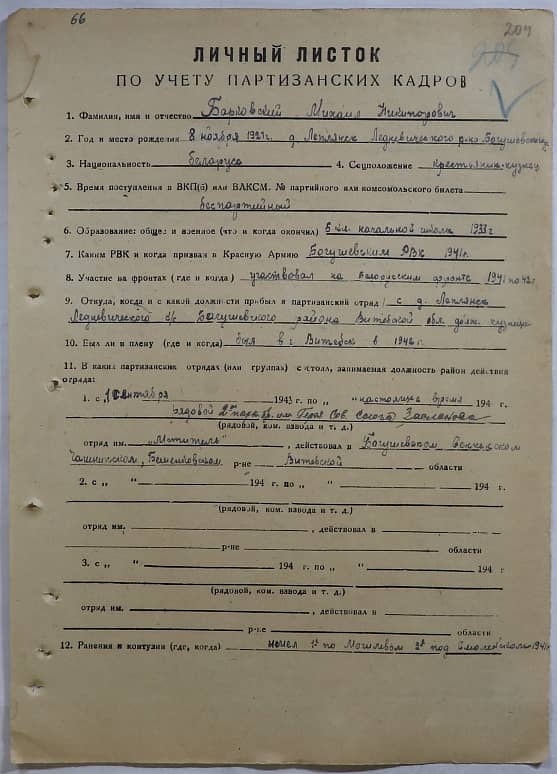 66
204
205
ЛИЧНЫЙ ЛИСТОК
ПО УЧЕТУ ПАРТИЗАНСКИХ КАДРОВ
1. Фамилия, имя и отчество Барковский Михаил Никипорович
2. Год и место рождения 8 ноября 1921г. д. Леплянск Ледневического р-на
3. Национальность беларус 4. Соцположение крестьянин-кузнец
5. Время поступления в ВКП(б) или ВЛКСМ, № партийного или комсомольского билета
беспартийный
6. Образование: общее и военное (что и когда окончил) 5 кл. начальной школы 1933 г
7. Каким РВК и когда призван в Красную Армию Богушевским РВК 1941г.
8. Участие на фронтах (где и когда) участвовал на Белорусским фронте 1941 по 42 г
9. Откуда, когда и с какой должности прибыл в партизанский отряд с д. Леплянск
Ледневического с/с Богушевского района Витебской обл. долж. кузнеца
10. Был ли в плену (где и когда) был в г Витебск в 1942 г.
11. В каких партизанских отрядах (или группах) состоял, занимаемая должность район действия
отряда:
1. с 1 сентября 1943 г. по „ “ настоящее время 194 г.
рядовой 2й пар. бр. им Героя Сов. Союза Заслонова
(рядовой, ком. взвода и т. д.)
отряд им. „Мститель“ , действовал в Богушевском
Чашникском, Бешенковском р-не Витебской области
2. с „ “ 194 г. по „ “ 194 г.
(рядовой, ком. взвода и т. д.)
отряд им. , действовал в
р-не области
3. с „ “ 194 г. по „ “ 194 г
(рядовой, ком. взвода и т. д.)
отряд им. , действовал в
р-не области
12. Ранения и контузии (где, когда) имел 1е по Могилевом 2е под Смоленском 1941г